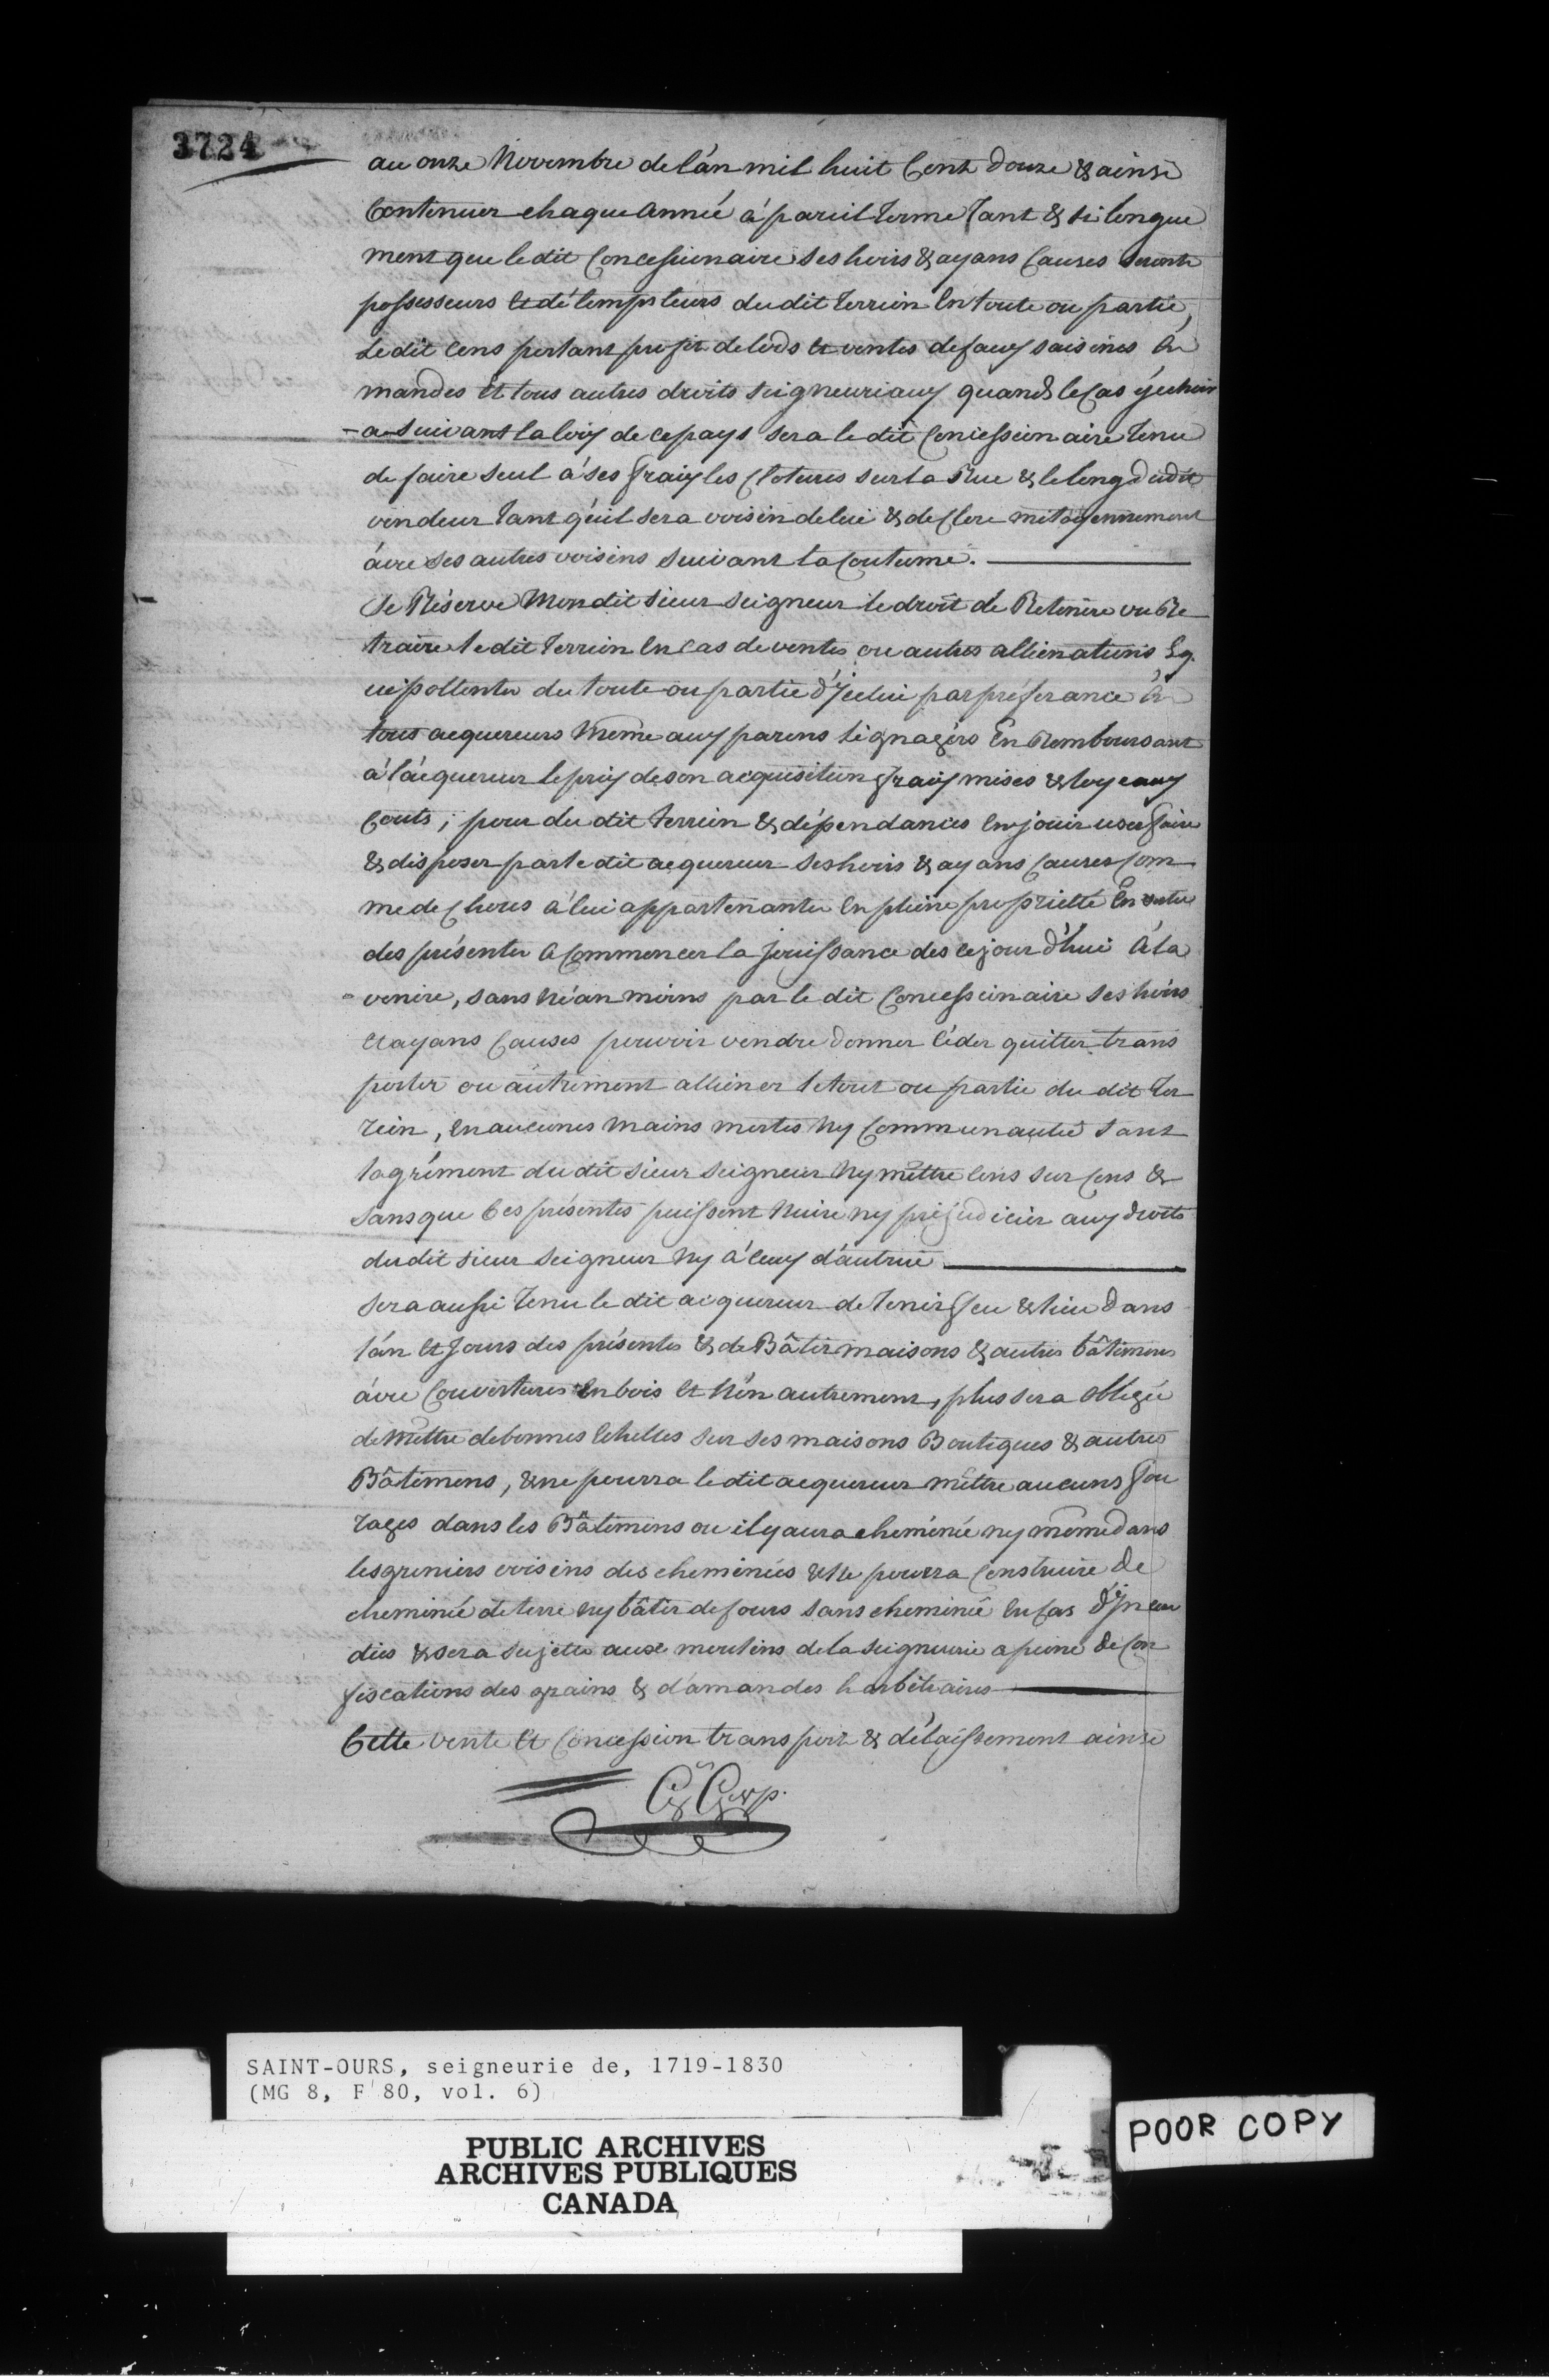 3724
au onze Novembre de l'an mil huit Cent douze & ainsi
Continuer chaque Année à pareil terme tant & si longue
ment que le dit Concessionaire ses hoirs & ayans Causes seronts
possesseurs et détempteurs du dit terrein En toute ou partie,
Le dit Cens portant profit de lods et ventes defaux saisines A
mandes Et tous autres droits seigneuriaux quand le Cas y'echoir
-a suivant la loix de ce pays sera le dit Concessionaire tenu
de faire seul à ses fraix les Clotures sur la Rue & le long dudit
vendeur tant qu'il sera voisin de lui & de Clore mitoyennement
avec ses autres voisins suivant la Coutume.
Se Réserve Mondit sieur seigneur le droit de Retenire ou Re
traire le dit terrein En Cas de ventes ou autres alliénations Eq
uipollente du toute ou partie d'Jcelui par préferance à
tous acquereurs Même aux parens lignagers En Remboursant
à l'acquereur le prix de son acquisition fraix mises & loyeaux
Couts; pour du dit terrein & dépendances En jouir user faire
& disposer par le dit acquereur ses hoirs & ayans Causes Com
me de Choses à lui appartenantes En pleine propriette En vertu
des présentes a Commencer la Jouissance des ce jour d'hui à la
venire, sans Néanmoins par le dit Concessionaire ses hoirs
et ayans Causes pouvoir vendre donner Céder quitter trans
porter ou autrement alliener le tout ou partie du dit ter
rein, En aucunes mains mortes Ny Communauté sans
l'agrément du dit sieur seigneur Ny mettre Cens sur Cens &
sans que Ces présentes puissent Nuire ny préjudicier aux droits
du dit sieur seigneur Ny à Ceux d'autrui
sera aussi tenu le dit acquereur de tenir feu & lieu dans
l'an et Jours des présentes & de Bâtir maisons & autres bâtimens
avec Couvertures En bois et Non autrement, plus sera obligée
de Mettre de bonnes Echelles sur ses maisons Boutiques & autres
Bâtimens, & ne pourra le dit acquereur mettre aucuns fou
rages dans les Bâtimens ou il y aura cheminée ny même dans
les greniers voisins des cheminées & Ne pourra Construire de
cheminée de terre ny bâtir de fours sans cheminée En Cas d'Jncen
dies & sera sujette aux moulins de la seigneurie a peine de Con
fiscations des grains & d'amandes harbitraires
Cette vente Et Concession transport & délaissement ainsi
SAINT-OURS, seigneurie de, 1719-1830
(MG 8, F 80, vol. 6)
PUBLIC ARCHIVES
ARCHIVES PUBLIQUES
CANADA
POOR COPY